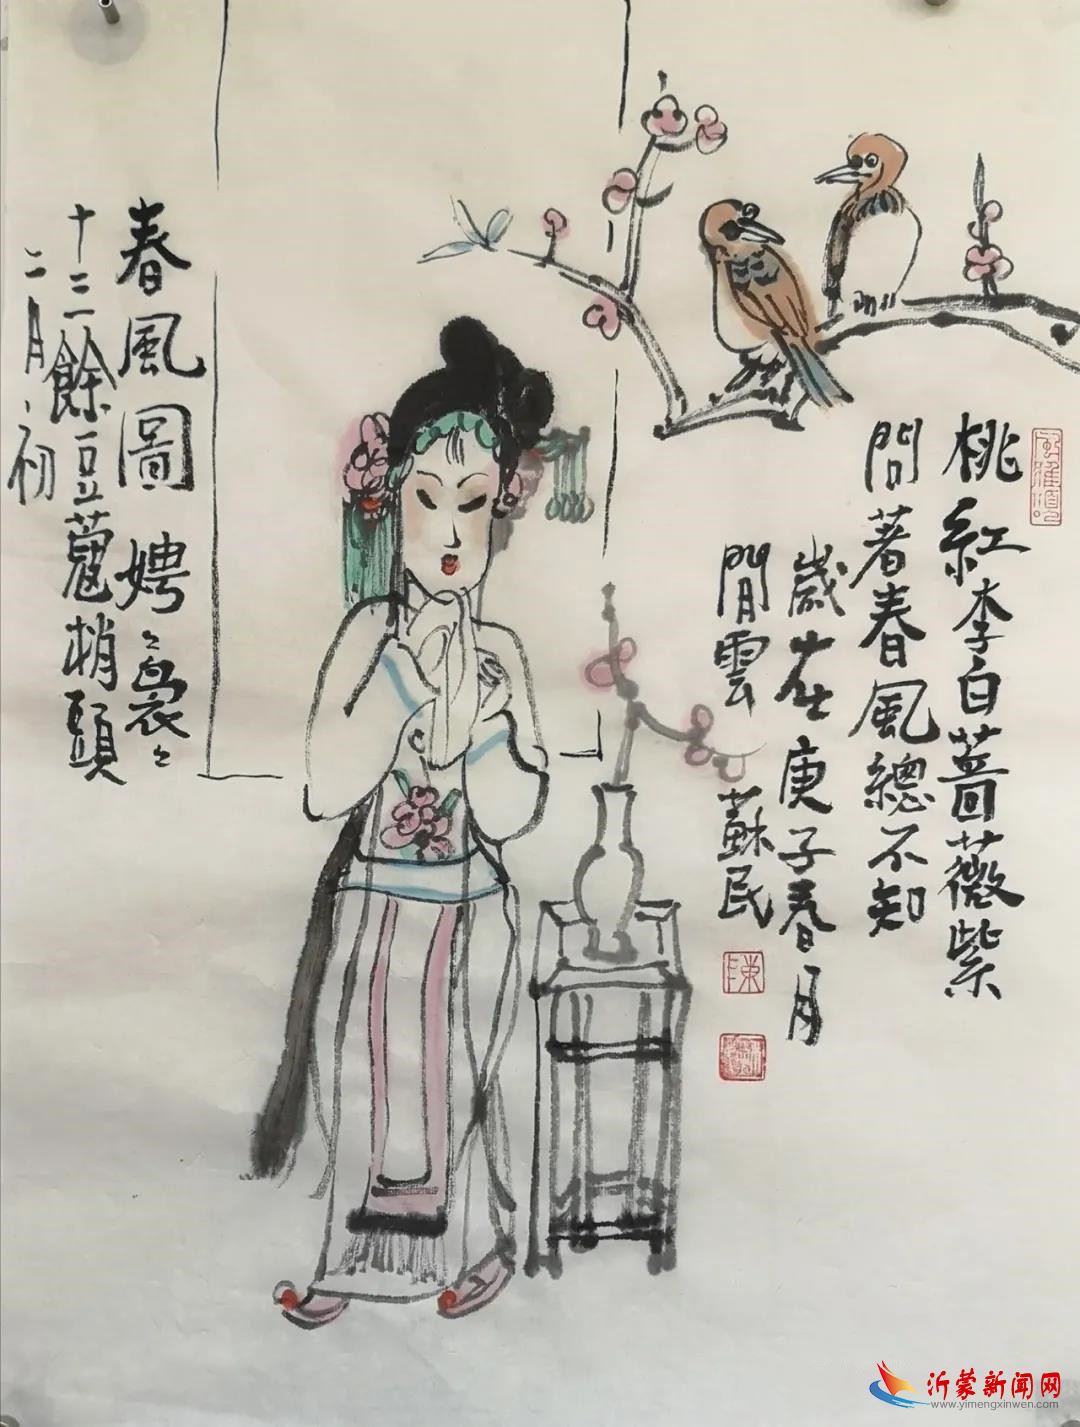 桃紅李白薔薇紫
問著春風總不知
歲在庚子春月
閒雲 蘇民
陳
春風圖 娉〻裊〻
十三餘豆蔻梢頭
二月初
沂蒙新闻网
www.yimengxinwen.com